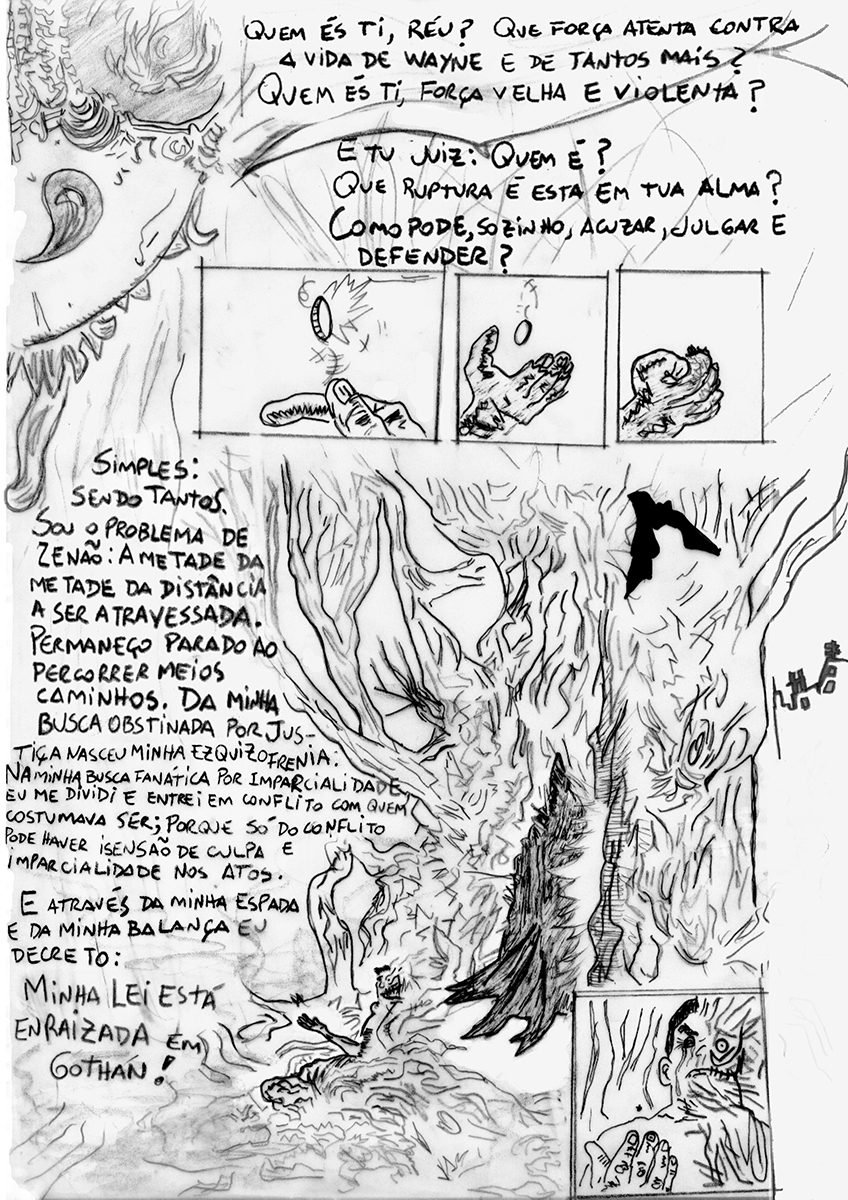 QUEM ÉS TI, RÉU? QUE FORÇA ATENTA CONTRA
A VIDA DE WAYNE E DE TANTOS MAIS?
QUEM ÉS TI, FORÇA VELHA E VIOLENTA?
E TU JUIZ: QUEM É?
QUE RUPTURA É ESTA EM TUA ALMA?
COMO PODE, SOZINHO, ACUZAR, JULGAR E
DEFENDER?
SIMPLES:
SENDO TANTOS.
SOU O PROBLEMA DE
ZENÃO: A METADE DA
METADE DA DISTÂNCIA
A SER ATRAVESSADA.
PERMANEÇO PARADO AO
PERCORRER MEIOS
CAMINHOS. DA MINHA
BUSCA OBSTINADA POR JUS-
TIÇA NASCEU MINHA EZQUIZOFRENIA:
NA MINHA BUSCA FANÁTICA POR IMPARCIALIDADE,
EU ME DIVIDI E ENTREI EM CONFLITO COM QUEM
COSTUMAVA SER; PORQUE SÓ DO CONFLITO
PODE HAVER ISENSÃO DE CULPA E
IMPARCIALIDADE NOS ATOS.
E ATRAVÉS DA MINHA ESPADA
E DA MINHA BALANÇA EU
DECRETO:
MINHA LEI ESTÁ
ENRAIZADA EM
GOTHAN!